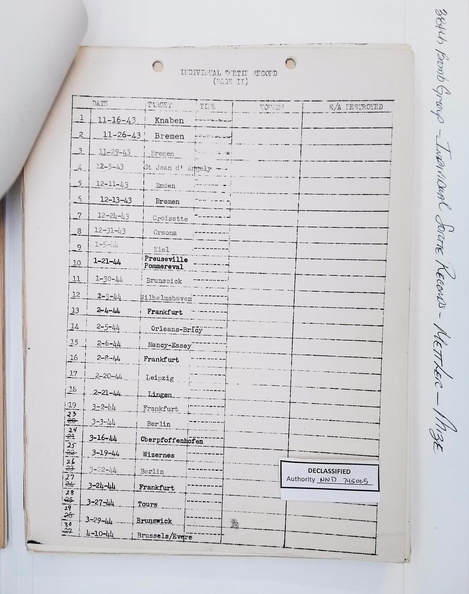 384th Bomb Group - Individual Sortie Record - Mettler - Mize
INDIVIDUAL SORTIE RECORD
(PAGE II)
DATE TARGET TIME E/A DESTROYED
1 11-16-43 Knaben
2 11-26-43 Bremen
3 11-29-43 Bremen
4 12-5-43 St Jean d' Angely
5 12-11-43 Emden
6 12-13-43 Bremen
7 12-24-43 Croisette
8 12-31-43
9 1-5-44 Kiel
10 1-21-44 Preuseville
Pommereval
11 1-30-44 Brunswick
12 Wilhelmshaven
13 2-4-44 Frankfurt
14 2-5-44 Orleans-Bricy
15 2-6-44 Nancy-Essey
16 2-8-44 Frankfurt
17 2-20-44 Leipzig
18 2-21-44 Lingen
19 3-2-44 Frankfurt
23 3-3-44 Berlin
24 3-16-44 Oberpfoffenhofen
25 3-19-44 Wizernes
26 3-22-44 Berlin
27 3-24-44 Frankfurt
28 3-27-44 Tours
29 3-29-44 Brunswick
30 4-10-44 Brussels/Evere
DECLASSIFIED
Authority NND 745005